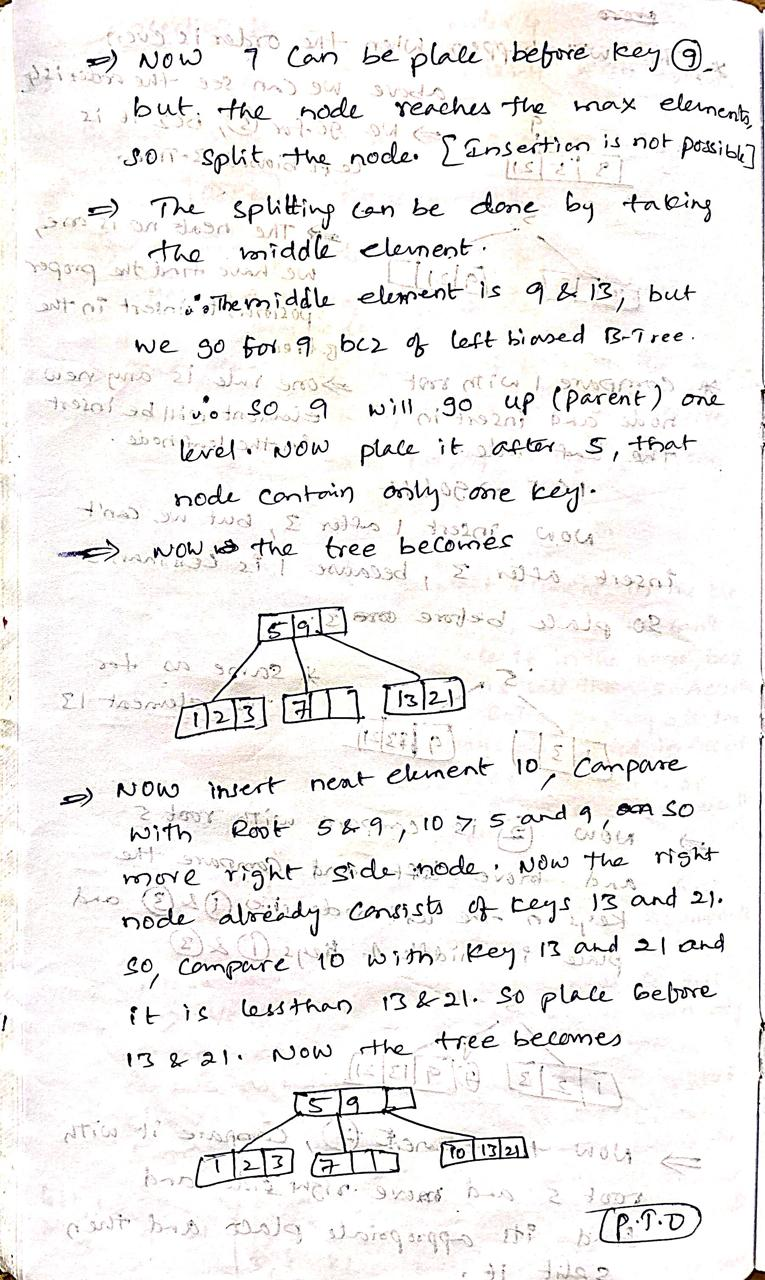 ⇒ Now 7 can be place before key 9.
but the node reaches the max elements,
so split the node. [Insertion is not possible]
⇒ The splitting can be done by taking
the middle element.
∴ The middle element is 9 & 13, but
we go for 9 bcz of left biased B-Tree.
∴ so 9 will go up (parent) one
level. Now place it after 5, that
node contain only one key.
⇒ Now the tree becomes
5 9
1 2 3 7 13 21
⇒ Now insert next element 10, Compare
with Root 5 & 9, 10 > 5 and 9, so
more right side node. Now the right
node already consists of keys 13 and 21.
so, compare 10 with key 13 and 21 and
it is lessthan 13 & 21. so place before
13 & 21. Now the tree becomes
5 9
1 2 3 7 10 13 21
P.T.O